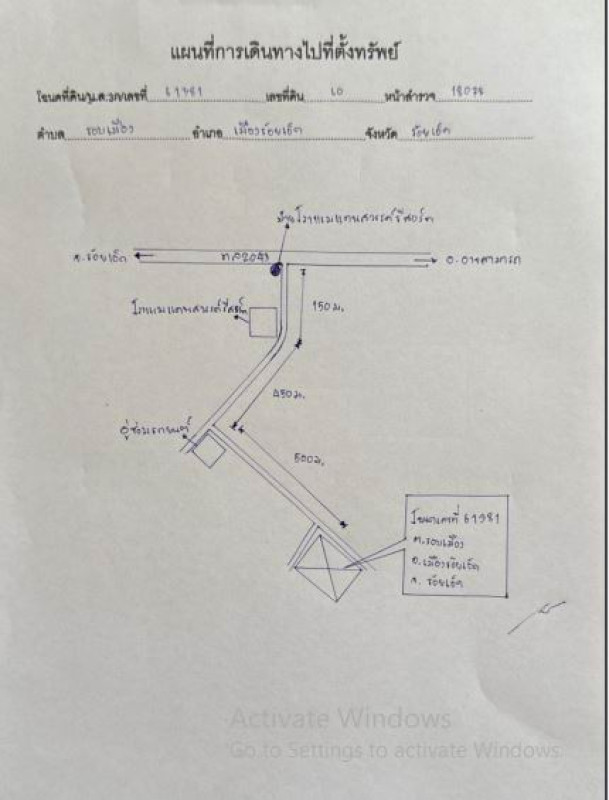 แผนที่การเดินทางไปที่ตั้งทรัพย์
โฉนดที่ดิน/น.ส.3ก/เลขที่ 61981 เลขที่ดิน 60 หน้าสำรวจ
ตำบล รอบเมือง อำเภอ เมืองร้อยเอ็ด จังหวัด ร้อยเอ็ด
ป้ายโรงแรมแดนสวรรค์รีสอร์ต
จ.ร้อยเอ็ด
ทล.2043
อ.อาจสามารถ
โรงแรมแดนสวรรค์รีสอร์ต
150 ม.
450 ม.
อู่ซ่อมรถยนต์
500 ม.
โฉนดเลขที่ 61981
ต.รอบเมือง
อ.เมืองร้อยเอ็ด
จ. ร้อยเอ็ด
Activate Windows
Go to Settings to activate Windows.